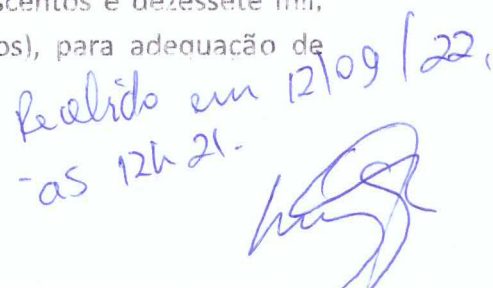 scentos e dezessete mil,
os), para adequação de
Recebido em 12/09/22,
-as 12h21.